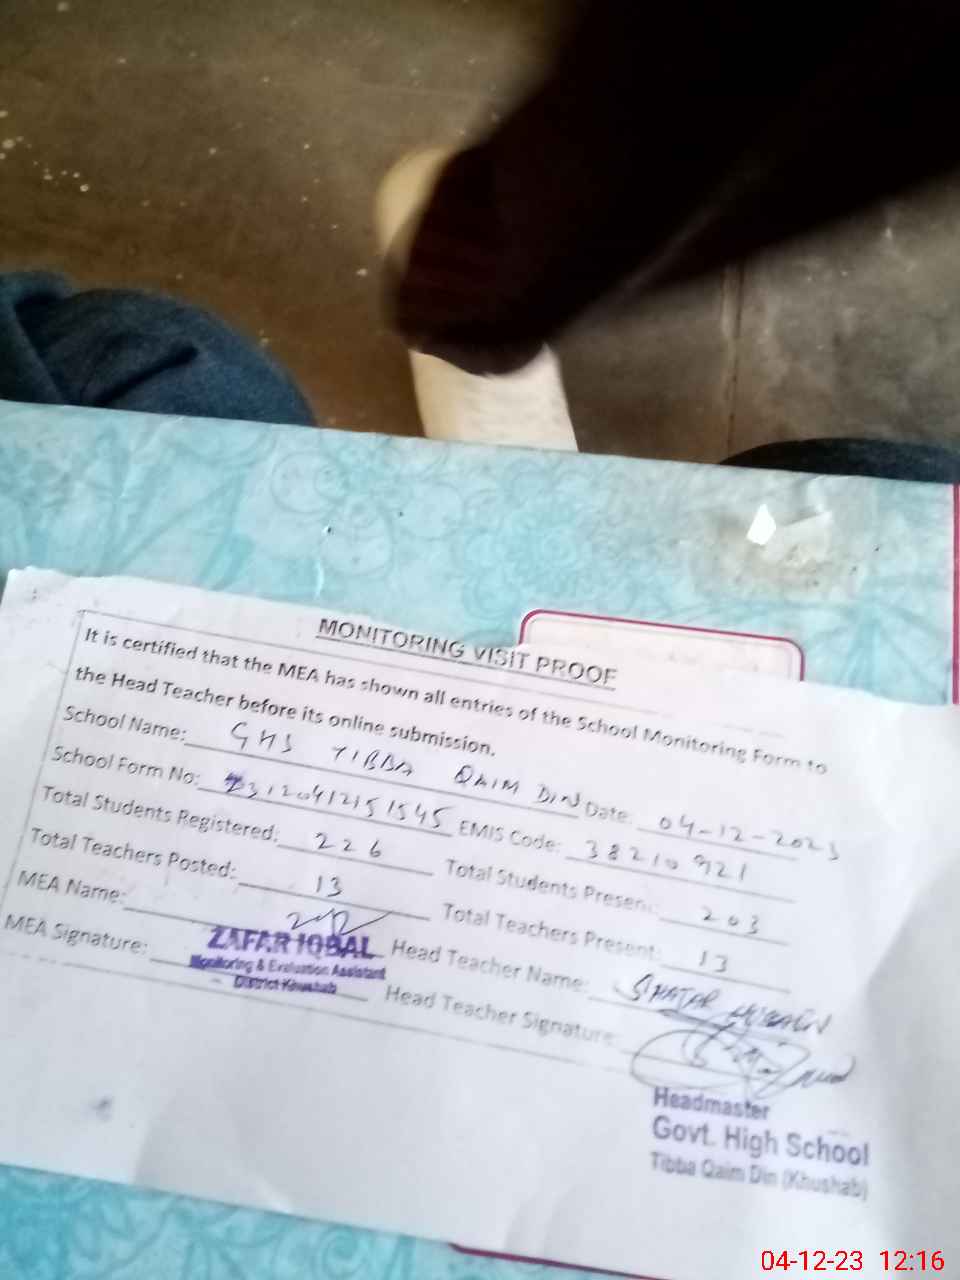 MONITORING VISIT PROOF
It is certified that the MEA has shown all entries of the School Monitoring Form to
the Head Teacher before its online submission.
School Name: GHS TIBBA QAIM DIN Date: 04-12-2023
School Form No: 3120412151545 EMIS Code: 38210921
Total Students Registered: 226 Total Students Present: 203
Total Teachers Posted: 13 Total Teachers Present: 13
MEA Name: ZAFAR IQBAL Head Teacher Name: HUSSAIN
Monitoring & Evaluation Assistant
District Khushab
MEA Signature: Head Teacher Signature:
Headmaster
Govt. High School
Tibba Qaim Din (Khushab)
04-12-23 12:16